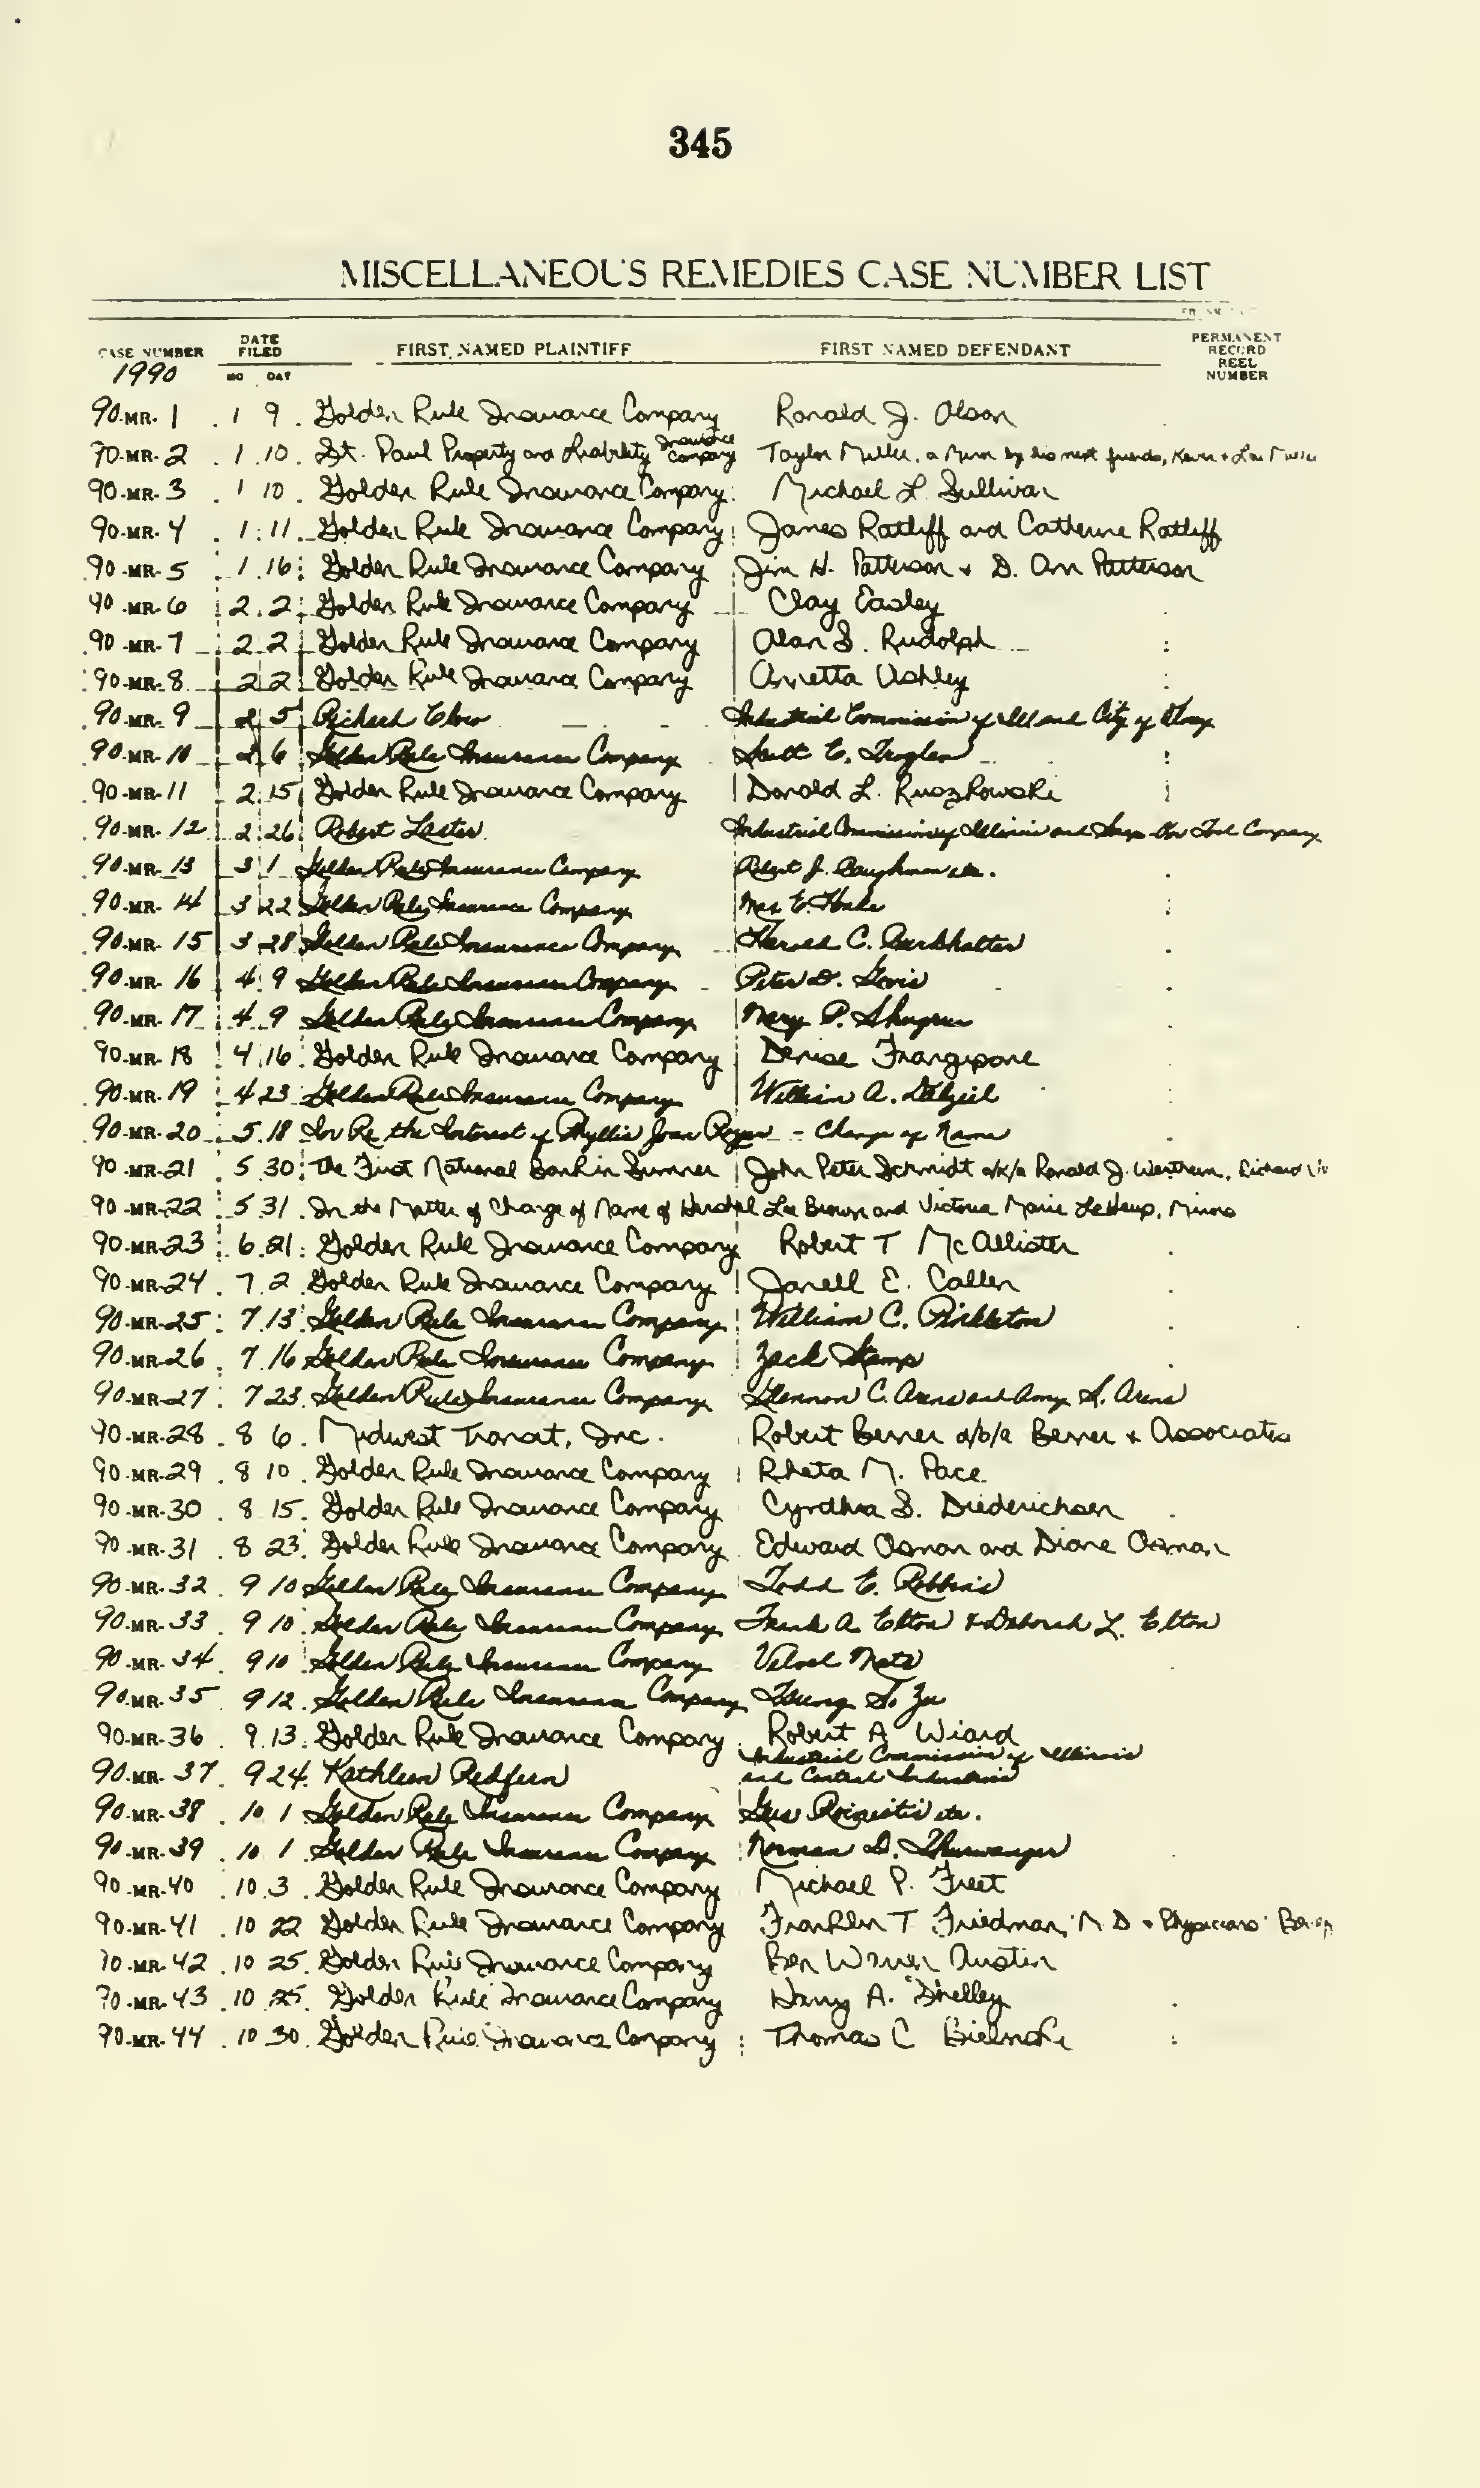 345
MISCELLANEOUS REMEDIES CASE NUMBER LIST
CASE NUMBER DATE FILED FIRST NAMED PLAINTIFF FIRST NAMED DEFENDANT PERMANENT RECORD REEL NUMBER
1990 MO DAY
90-MR-1 1 9 Golden Rule Insurance Company Ronald J. Olson
90-MR-2 1 10 St. Paul Property and Liability Insurance Company Taylor Miller, a Minor by his next friends,
90-MR-3 1 10 Golden Rule Insurance Company Michael L. Sullivan
90-MR-4 1 11 Golden Rule Insurance Company James Ratliff and Catherine Ratliff
90-MR-5 1 16 Golden Rule Insurance Company Jim H. Patterson + D. Ann Patterson
90-MR-6 2 2 Golden Rule Insurance Company Clay Easley
90-MR-7 2 2 Golden Rule Insurance Company Alan S. Rudolph
90-MR-8 2 2 Golden Rule Insurance Company Annetta Ashley
90-MR-9 2 5 Richard Industrial Commission of Ill and City of Olney
90-MR-10 2 6 Golden Rule Insurance Company Scott E.
90-MR-11 2 15 Golden Rule Insurance Company Donald L. Ruszkowski
90-MR-12 2 26 Robert Lester Industrial Commission of Illinois and Snap-On Tool Company
90-MR-13 3 1 Golden Rule Insurance Company Robert J. Baughman etc.
90-MR-14 3 22 Golden Rule Insurance Company Max E.
90-MR-15 3 28 Golden Rule Insurance Company Harold C. Burkhalter
90-MR-16 4 9 Golden Rule Insurance Company Peter D.
90-MR-17 4 9 Golden Rule Insurance Company Mary P. Shugrue
90-MR-18 4 16 Golden Rule Insurance Company Denise Frangipane
90-MR-19 4 23 Golden Rule Insurance Company William A. Dalziel
90-MR-20 5 18 In Re the Interest of Phyllis Joan - Change of Name
90-MR-21 5 30 The First National Bank in Sumner John Peter Schmidt a/k/a Ronald J.
90-MR-22 5 31 In the Matter of Change of Name of Herschel Lee Brown and Victoria Marie Minors
90-MR-23 6 21 Golden Rule Insurance Company Robert T McAllister
90-MR-24 7 2 Golden Rule Insurance Company Janell E. Callen
90-MR-25 7 13 Golden Rule Insurance Company William C. Pickleton
90-MR-26 7 16 Golden Rule Insurance Company Zack Stamp
90-MR-27 7 23 Golden Rule Insurance Company Glennon C. Arens and Amy S. Arens
90-MR-28 8 6 Midwest Transit, Inc. Robert Berner d/b/a Berner + Associates
90-MR-29 8 10 Golden Rule Insurance Company Rheta M. Pace
90-MR-30 8 15 Golden Rule Insurance Company Cynthia S. Diederichsen
90-MR-31 8 23 Golden Rule Insurance Company Edward Osman and Diane Osman
90-MR-32 9 10 Golden Rule Insurance Company Todd E. Robbins
90-MR-33 9 10 Golden Rule Insurance Company Frank A. Elton & Deborah L. Elton
90-MR-34 9 10 Golden Rule Insurance Company Velvel
90-MR-35 9 12 Golden Rule Insurance Company Young
90-MR-36 9 13 Golden Rule Insurance Company Robert A Wiard
90-MR-37 9 24 Kathleen Redfern Industrial Commission of Illinois
and Industries
90-MR-38 10 1 Golden Rule Insurance Company Gus etc.
90-MR-39 10 1 Golden Rule Insurance Company Norman D.
90-MR-40 10 3 Golden Rule Insurance Company Michael P. Freet
90-MR-41 10 22 Golden Rule Insurance Company Franklin T Friedman, M D + Physicians'
90-MR-42 10 25 Golden Rule Insurance Company Ben Warren Austin
90-MR-43 10 25 Golden Rule Insurance Company Harry A. Shelley
90-MR-44 10 30 Golden Rule Insurance Company Thomas C